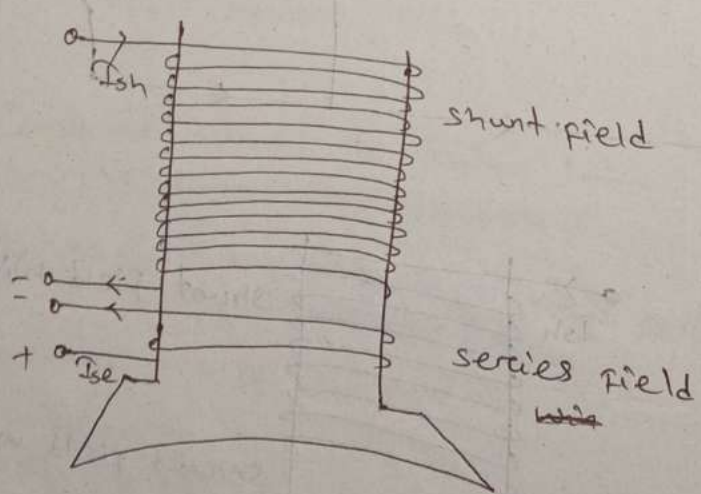 Ish
shunt field
-
-
+
Ise
sercies field